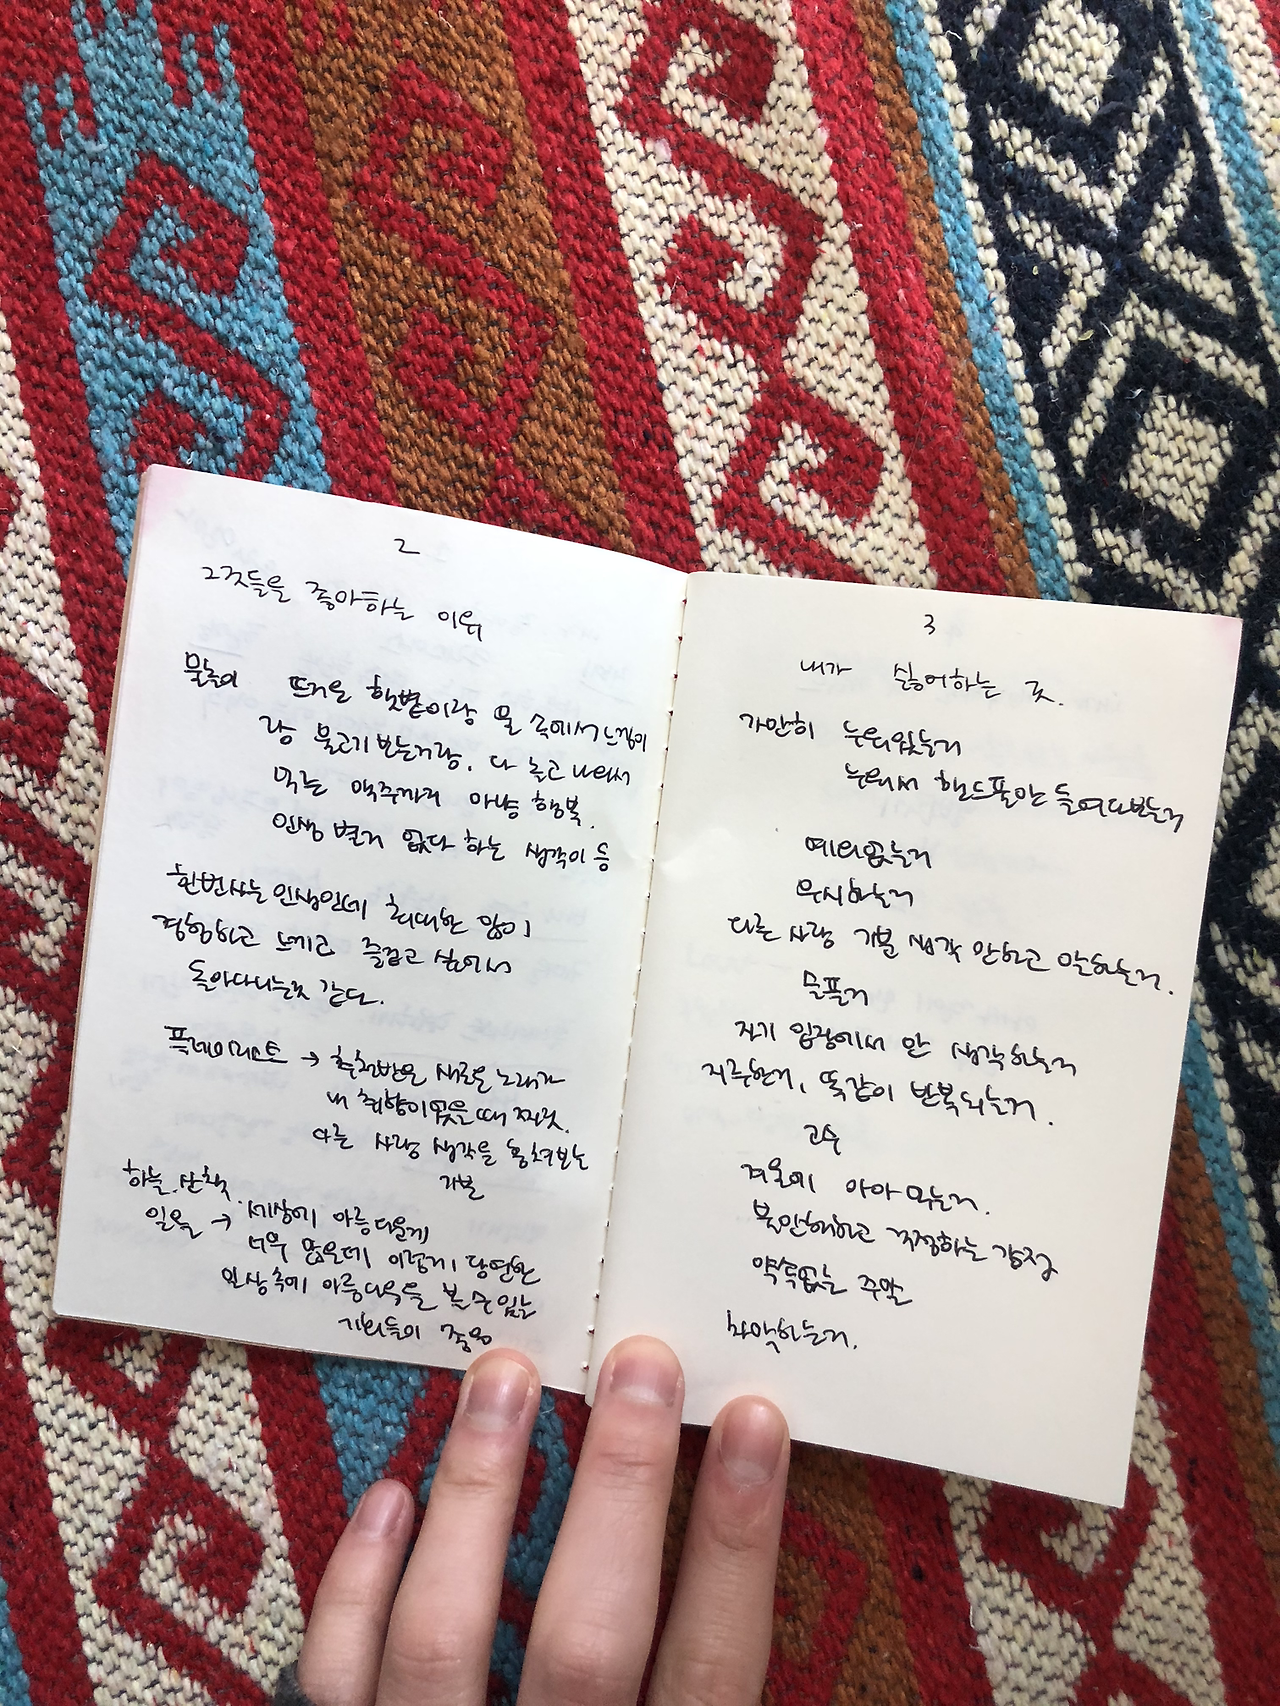 2
그것들을 좋아하는 이유
물놀이 뜨거운 햇볕이랑 물 속에서 느낌이
랑 물고기 보는거랑. 다 놀고 나와서
먹는 맥주까지 아냥 행복.
인생 별거 없다 하는 생각이 듬
한번사는 인생인데 최대한 많이
경험하고 느끼고 즐겁고 싶어서
돌아다니는것 같다.
플레이리스트 → 추천받은 새로운 노래가
내 취향이었을때 찌릿.
다른 사람 생각을 훔쳐보는
기분
하늘, 산책,
일몰 → 세상에 아름다운게
너무 많은데 이렇게 당연한
일상속에 아름다움을 볼 수 있는
기회들이 좋음
3
내가 싫어하는 것.
가만히 누워있는거
누워서 핸드폰만 들여다보는거
예의없는거
무시하는거
다른 사람 기분 생각 안하고 말하는거.
슬픈거
자기 입장에서 만 생각하는거
지루한거, 똑같이 반복되는거.
고수
겨울에 아아 먹는거.
불안해하고 걱정하는 감정
약속없는 주말
최악하는거.